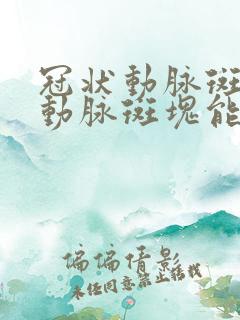 冠状動脉斑
動脉斑塊能
偏偏倩影
未经同意禁止转载